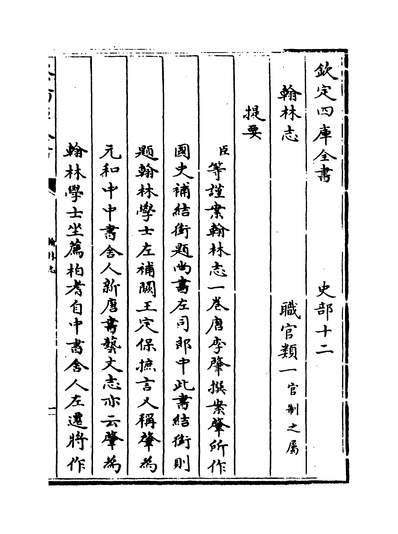 欽定四庫全書　史部十二
翰林志　職官類一官制之屬
提要
臣等謹案翰林志一卷唐李肇撰案肇所作
國史補結銜題尚書左司郎中此書結銜則
題翰林學士左補闕王定保摭言又稱肇為
元和中中書舍人新唐書藝文志亦云肇為
翰林學士坐薦柏耆自中書舍人左遷將作